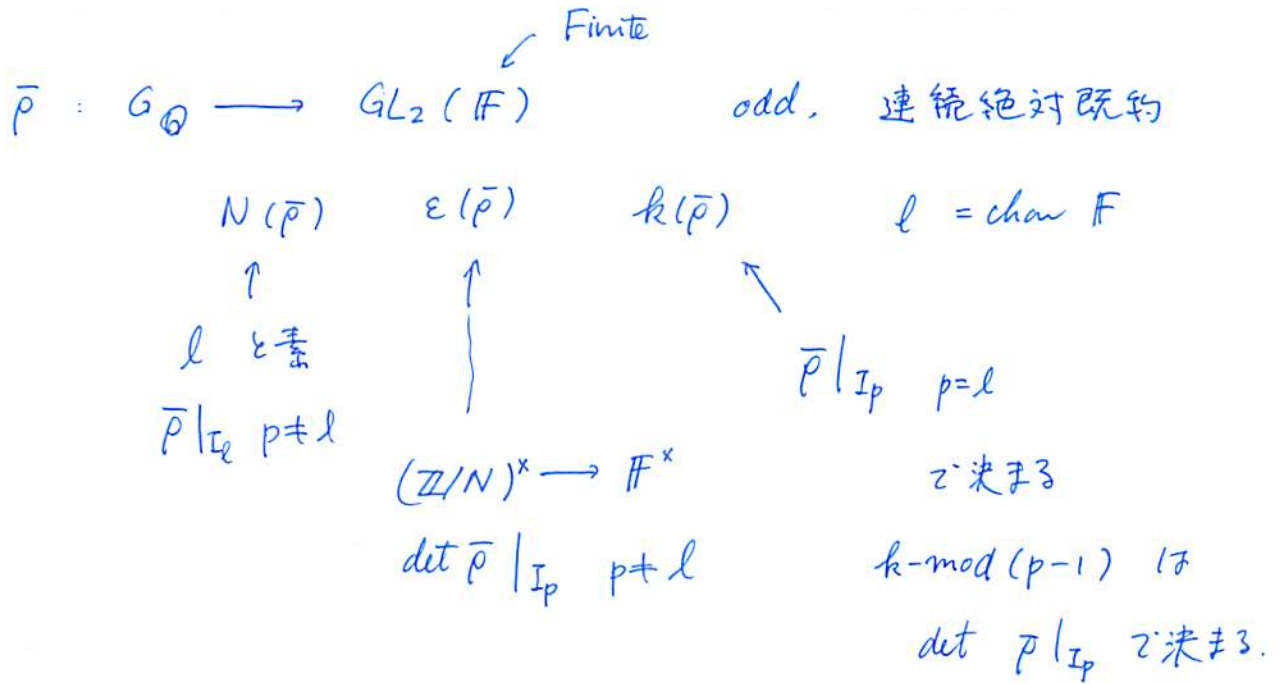 Finite
ρ̄ : G_ℚ ⟶ GL₂(𝔽) odd, 連続絶対既約
N(ρ̄) ε(ρ̄) k(ρ̄) ℓ = char 𝔽
ℓ と素
ρ̄|_{I_ℓ} p≠ℓ
(ℤ/N)^× ⟶ 𝔽^×
det ρ̄|_{I_p} p≠ℓ
ρ̄|_{I_p} p=ℓ
で決まる
k-mod(p-1) は
det ρ̄|_{I_p} で決まる.